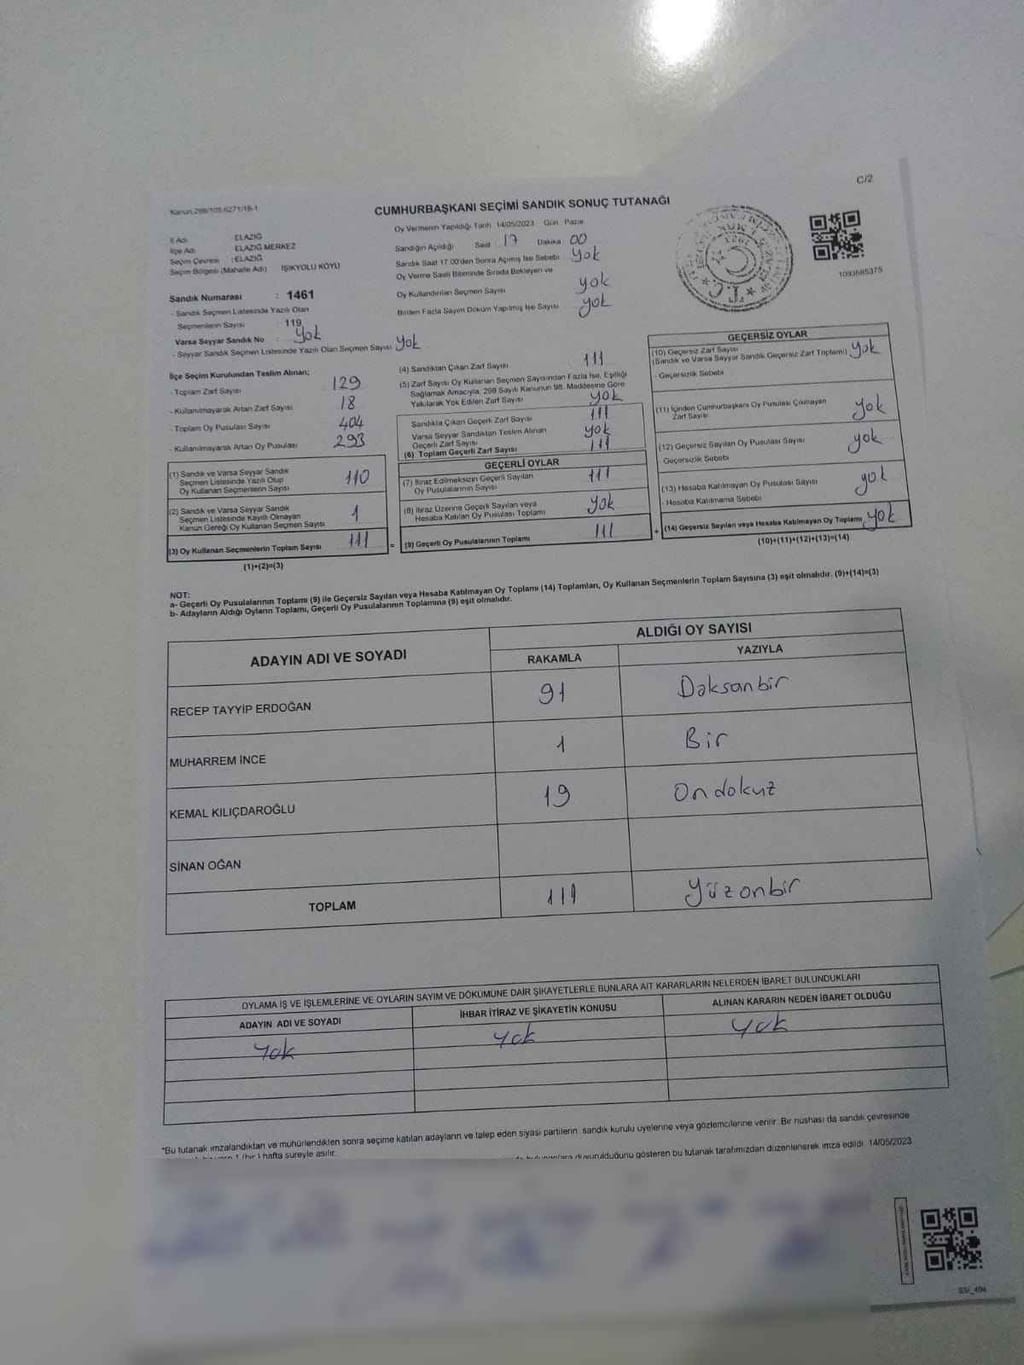 C/2
Kanun:298/105-6271/18-1
CUMHURBAŞKANI SEÇİMİ SANDIK SONUÇ TUTANAĞI
İl Adı : ELAZIĞ
İlçe Adı : ELAZIĞ MERKEZ
Seçim Çevresi : ELAZIĞ
Seçim Bölgesi (Mahalle Adı) IŞIKYOLU KÖYÜ
Oy Vermenin Yapıldığı Tarih 14/05/2023 Gün Pazar
Sandığın Açıldığı Saat 17 Dakika 00
Sandık Saat 17.00'den Sonra Açılmış İse Sebebi yok
Oy Verme Saati Bitiminde Sırada Bekleyen ve
Oy Kullandırılan Seçmen Sayısı yok
Birden Fazla Sayım Döküm Yapılmış İse Sayısı yok
1093685375
Sandık Numarası : 1461
- Sandık Seçmen Listesinde Yazılı Olan
Seçmenlerin Sayısı 119
Varsa Seyyar Sandık No : Yok
- Seyyar Sandık Seçmen Listesinde Yazılı Olan Seçmen Sayısı yok
İlçe Seçim Kurulundan Teslim Alınan;
- Toplam Zarf Sayısı 129
- Kullanılmayarak Artan Zarf Sayısı 18
- Toplam Oy Pusulası Sayısı 404
- Kullanılmayarak Artan Oy Pusulası 293
(1) Sandık ve Varsa Seyyar Sandık
Seçmen Listesinde Yazılı Olup
Oy Kullanan Seçmenlerin Sayısı 110
(2) Sandık ve Varsa Seyyar Sandık
Seçmen Listesinde Kayıtlı Olmayan
Kanun Gereği Oy Kullanan Seçmen Sayısı 1
(3) Oy Kullanan Seçmenlerin Toplam Sayısı 111
(1)+(2)=(3)
(4) Sandıktan Çıkan Zarf Sayısı 111
(5) Zarf Sayısı Oy Kullanan Seçmen Sayısından Fazla İse, Eşitliği
Sağlamak Amacıyla, 298 Sayılı Kanunun 98. Maddesine Göre
Yakılarak Yok Edilen Zarf Sayısı yok
Sandıkta Çıkan Geçerli Zarf Sayısı 111
Varsa Seyyar Sandıktan Teslim Alınan
Geçerli Zarf Sayısı yok
(6) Toplam Geçerli Zarf Sayısı 111
GEÇERLİ OYLAR
(7) İtiraz Edilmeksizin Geçerli Sayılan
Oy Pusulalarının Sayısı 111
(8) İtiraz Üzerine Geçerli Sayılan veya
Hesaba Katılan Oy Pusulası Toplamı Yok
= (9) Geçerli Oy Pusulalarının Toplamı 111
GEÇERSİZ OYLAR
(10) Geçersiz Zarf Sayısı
(Sandık ve Varsa Seyyar Sandık Geçersiz Zarf Toplamı) Yok
- Geçersizlik Sebebi
(11) İçinden Cumhurbaşkanı Oy Pusulası Çıkmayan
Zarf Sayısı yok
(12) Geçersiz Sayılan Oy Pusulası Sayısı yok
Geçersizlik Sebebi
(13) Hesaba Katılmayan Oy Pusulası Sayısı yok
- Hesaba Katılmama Sebebi
+ (14) Geçersiz Sayılan veya Hesaba Katılmayan Oy Toplamı yok
(10)+(11)+(12)+(13)=(14)
NOT:
a- Geçerli Oy Pusulalarının Toplamı (9) ile Geçersiz Sayılan veya Hesaba Katılmayan Oy Toplamı (14) Toplamları, Oy Kullanan Seçmenlerin Toplam Sayısına (3) eşit olmalıdır. (9)+(14)=(3)
b- Adayların Aldığı Oyların Toplamı, Geçerli Oy Pusulalarının Toplamına (9) eşit olmalıdır.
ADAYIN ADI VE SOYADI
ALDIĞI OY SAYISI
RAKAMLA YAZIYLA
RECEP TAYYİP ERDOĞAN 91 Doksanbir
MUHARREM İNCE 1 Bir
KEMAL KILIÇDAROĞLU 19 Ondokuz
SİNAN OĞAN
TOPLAM 111 Yüzonbir
OYLAMA İŞ VE İŞLEMLERİNE VE OYLARIN SAYIM VE DÖKÜMÜNE DAİR ŞİKAYETLERLE BUNLARA AİT KARARLARIN NELERDEN İBARET BULUNDUKLARI
ADAYIN ADI VE SOYADI İHBAR İTİRAZ VE ŞİKAYETİN KONUSU ALINAN KARARIN NEDEN İBARET OLDUĞU
Yok yok yok
*Bu tutanak imzalandıktan ve mühürlendikten sonra seçime katılan adayların ve talep eden siyasi partilerin sandık kurulu üyelerine veya gözlemcilerine verilir. Bir nüshası da sandık çevresinde
1 (bir) hafta süreyle asılır.
duyurulduğunu gösteren bu tutanak tarafımızdan düzenlenerek imza edildi. 14/05/2023